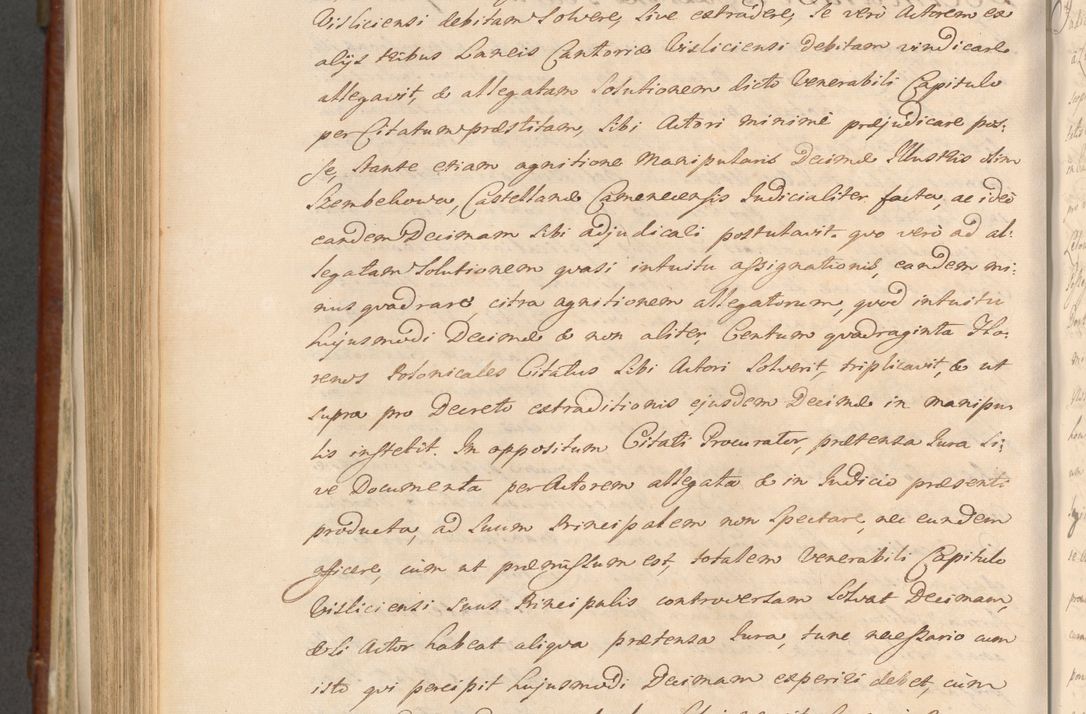 Visliciensi debitam Solvere, sive extradere, se verò Actorem ex
alijs tribus Laneis Cantoriæ Visliciensi debitam vindicare
allegavit, & allegatam Solutionem dicto Venerabili Capitulo
per Citatum præstitam, sibi Actori minimè præjudicare pos-
se, stante etiam agnitione Manipularis Decimæ Illustris olim
Szembekowa, Castellanæ Camenecensis Judicialiter facta, ac ideò
eandem Decimam sibi adjudicali postulavit. quo verò ad al-
legatam Solutionem quasi intuitu assignationis, eandem mi-
nus quadrare, citra agnitionem allegatorum, quod intuitu
hujusmodi Decimæ & non aliter, Centum quadraginta Flo-
renos Polonicales Citatus sibi Actori Solverit, triplicavit, & ut
supra pro Decreto extraditionis ejusdem Decimæ in manipu-
lis institit. In oppositum Citati Procurator, prætensa Jura Si-
ve Documenta per Actorem allegata & in Judicio præsenti
producta, ad Suum Principalem non Spectare, nec eundem
afficere, cùm ut præmissum est, totalem Venerabili Capitulo
Visliciensi Suus Principalis controversam Solvat Decimam,
& si Actor habeat aliqua prætensa Jura, tunc necessario cum
isto qui percipit hujusmodi Decimam experiri debet, cùm